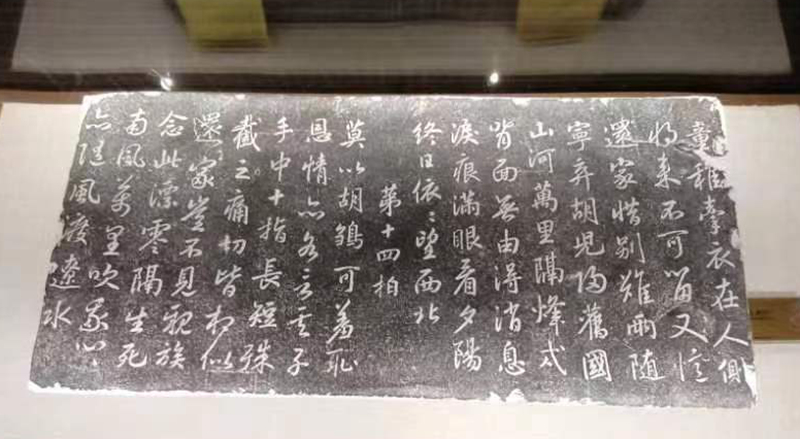 童稚牽衣在人側
將來不可留又憶
還家惜別難兩隨
寧弃胡兒歸舊國
山河萬里隔烽戍
背面無由得消息
淚痕滿眼看夕陽
終日依〻望西北
第十四拍
莫以胡雛可羞恥
恩情亦各言其子
手中十指長短殊
截之痛切皆相似
還家豈不見親族
念此漂零隔生死
南風萬里吹我心〻
亦隨風渡遼水